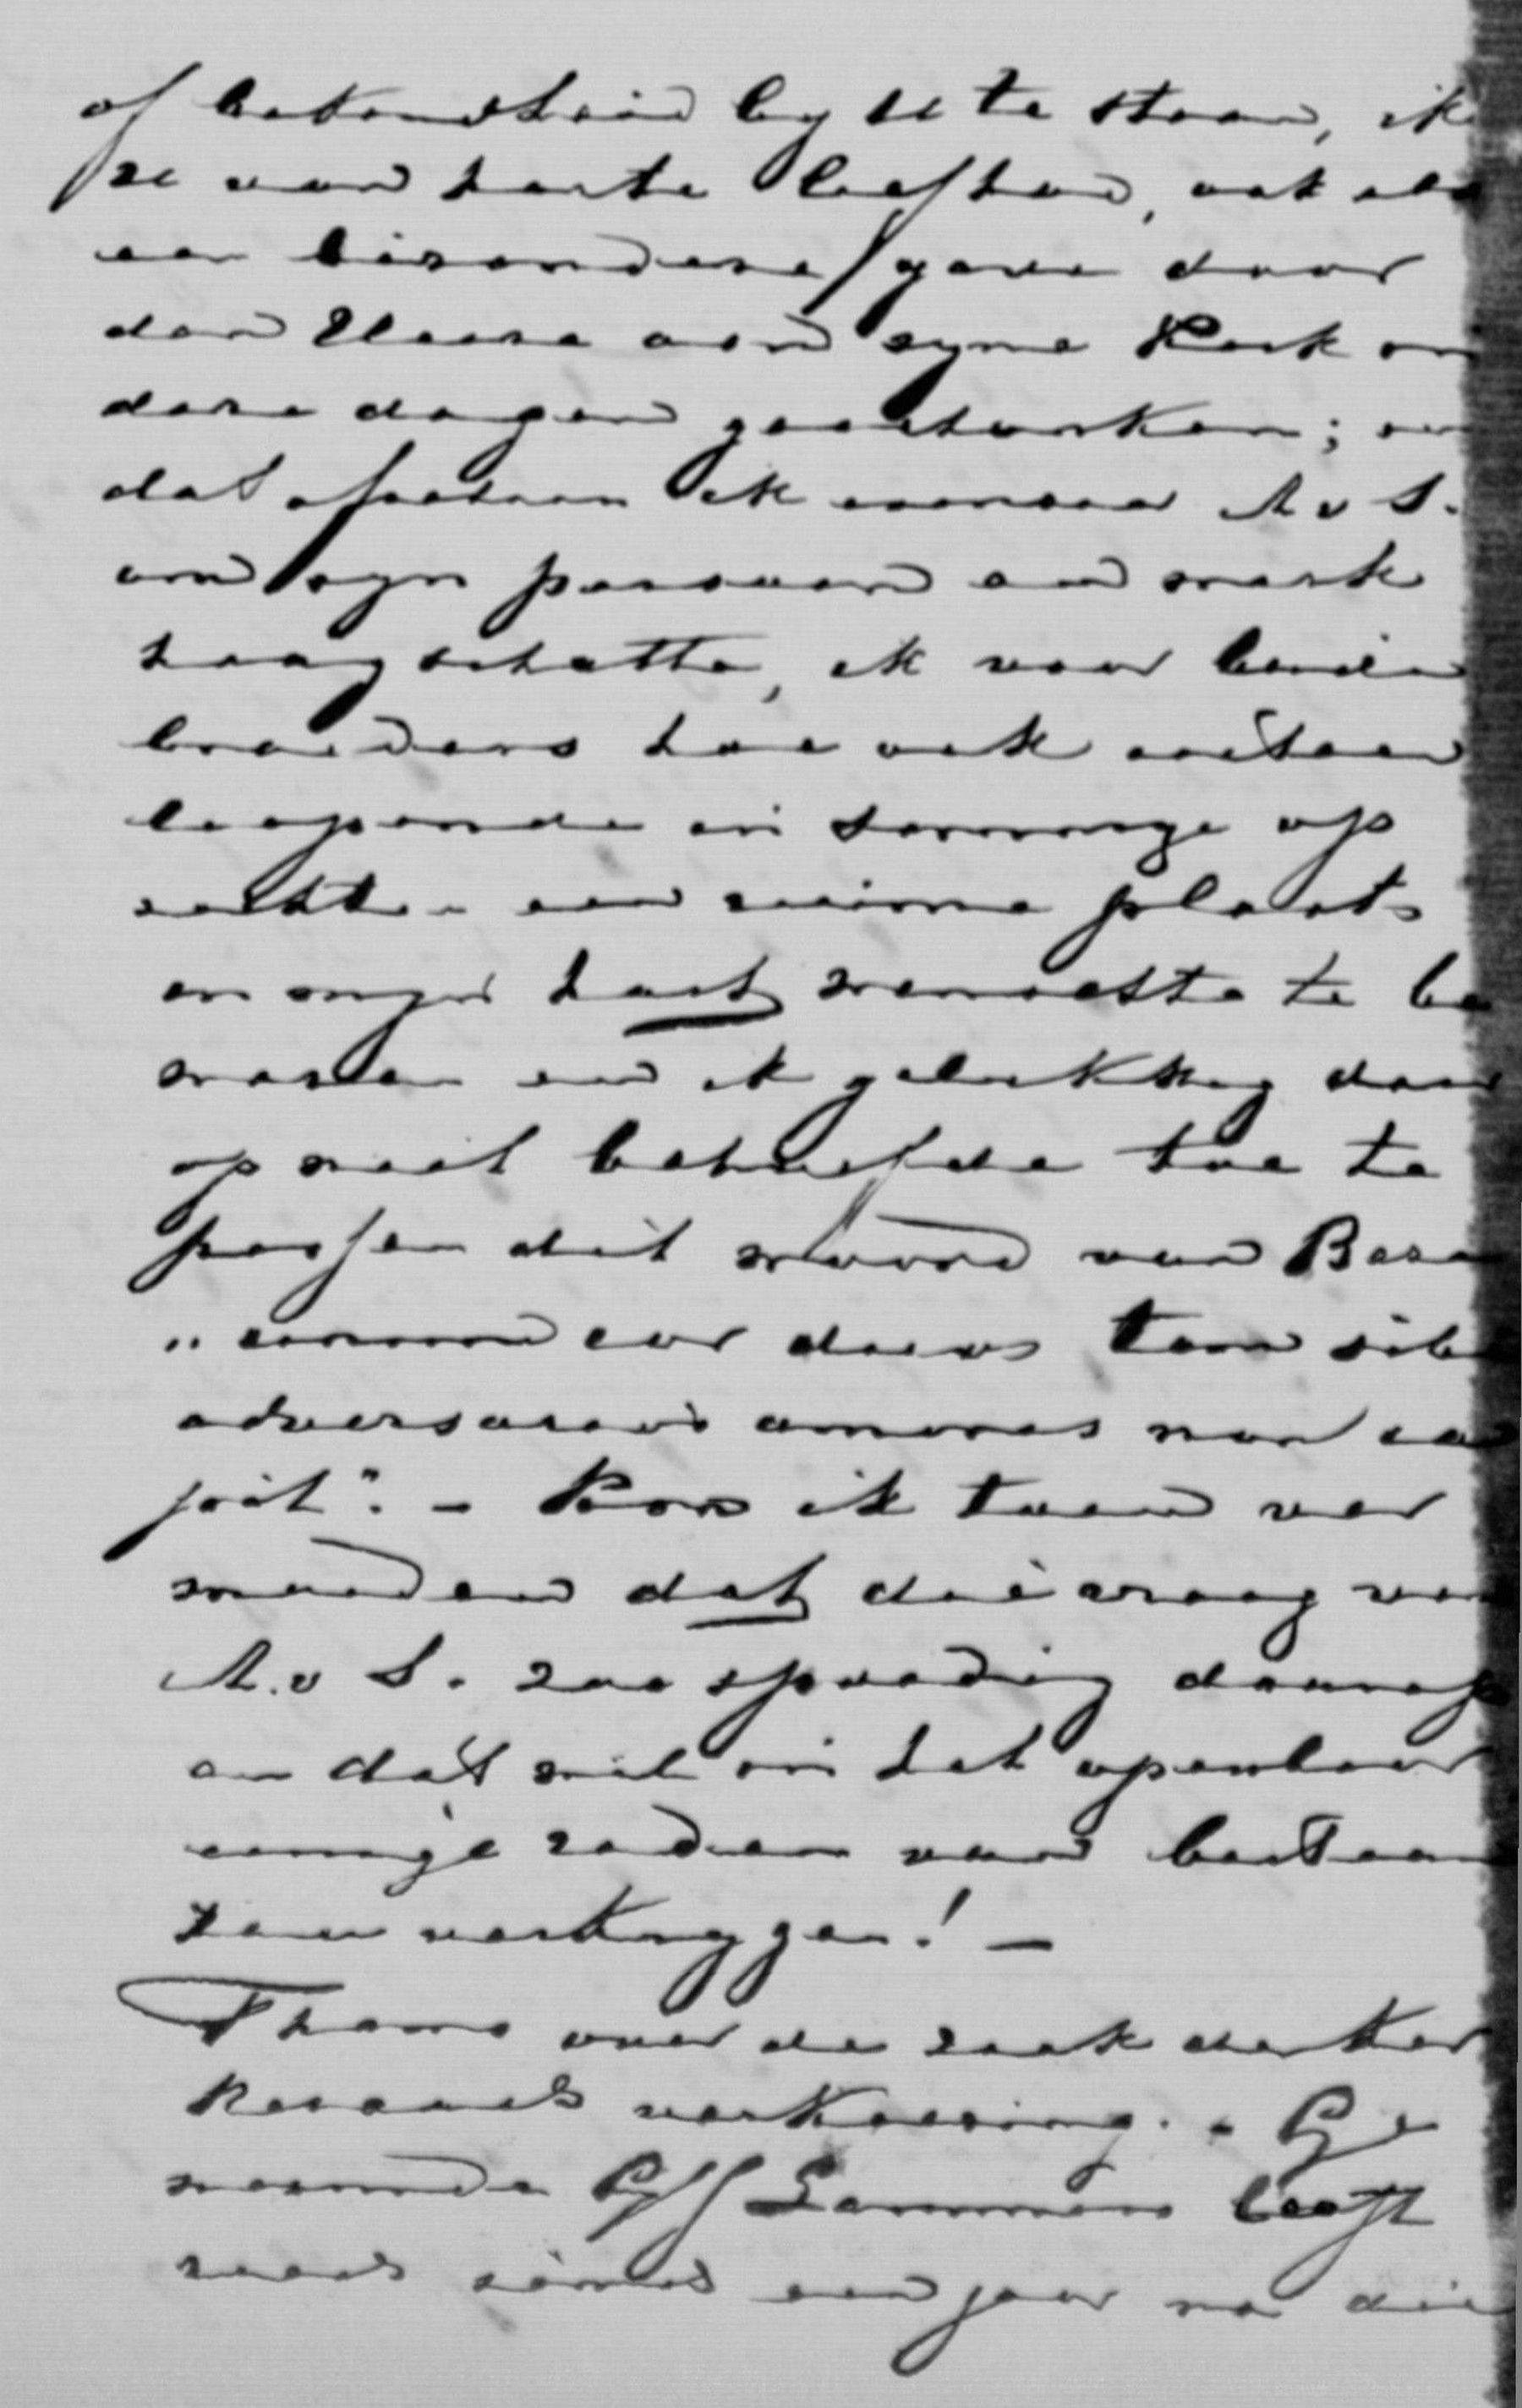 of bekendheid by U te staan, ik
ze van harte liefhad, ook als
een bizondere gave door
den Heere aan zyne Kerk in
deze dagen geschonken; en
dat ofschoon ik evenzeer A v S.
om zyn persoon en werk
hoogschatte, ik voor beide
broeders hoe ook uiteen
loopende in sommige op
zichten een ruime plaats
in myn hart wenschte te be
waren en ik gelukkig daar
op niet behoefde toe te
passen dit woord van Beza
"unum cor duos tam sibi
adversarios amores non ca
pit". - Kon ik toen ver
moeden dat die vraag van
A. v S. zoo spoedig daarop
en dat wel in het openbaar
eenige reden van bestaan
zou verkrygen! -
Thans over de zaak der Ker
keraads verkiezing. - Ge
noemde Lammers heeft
reeds sinds een jaar na die